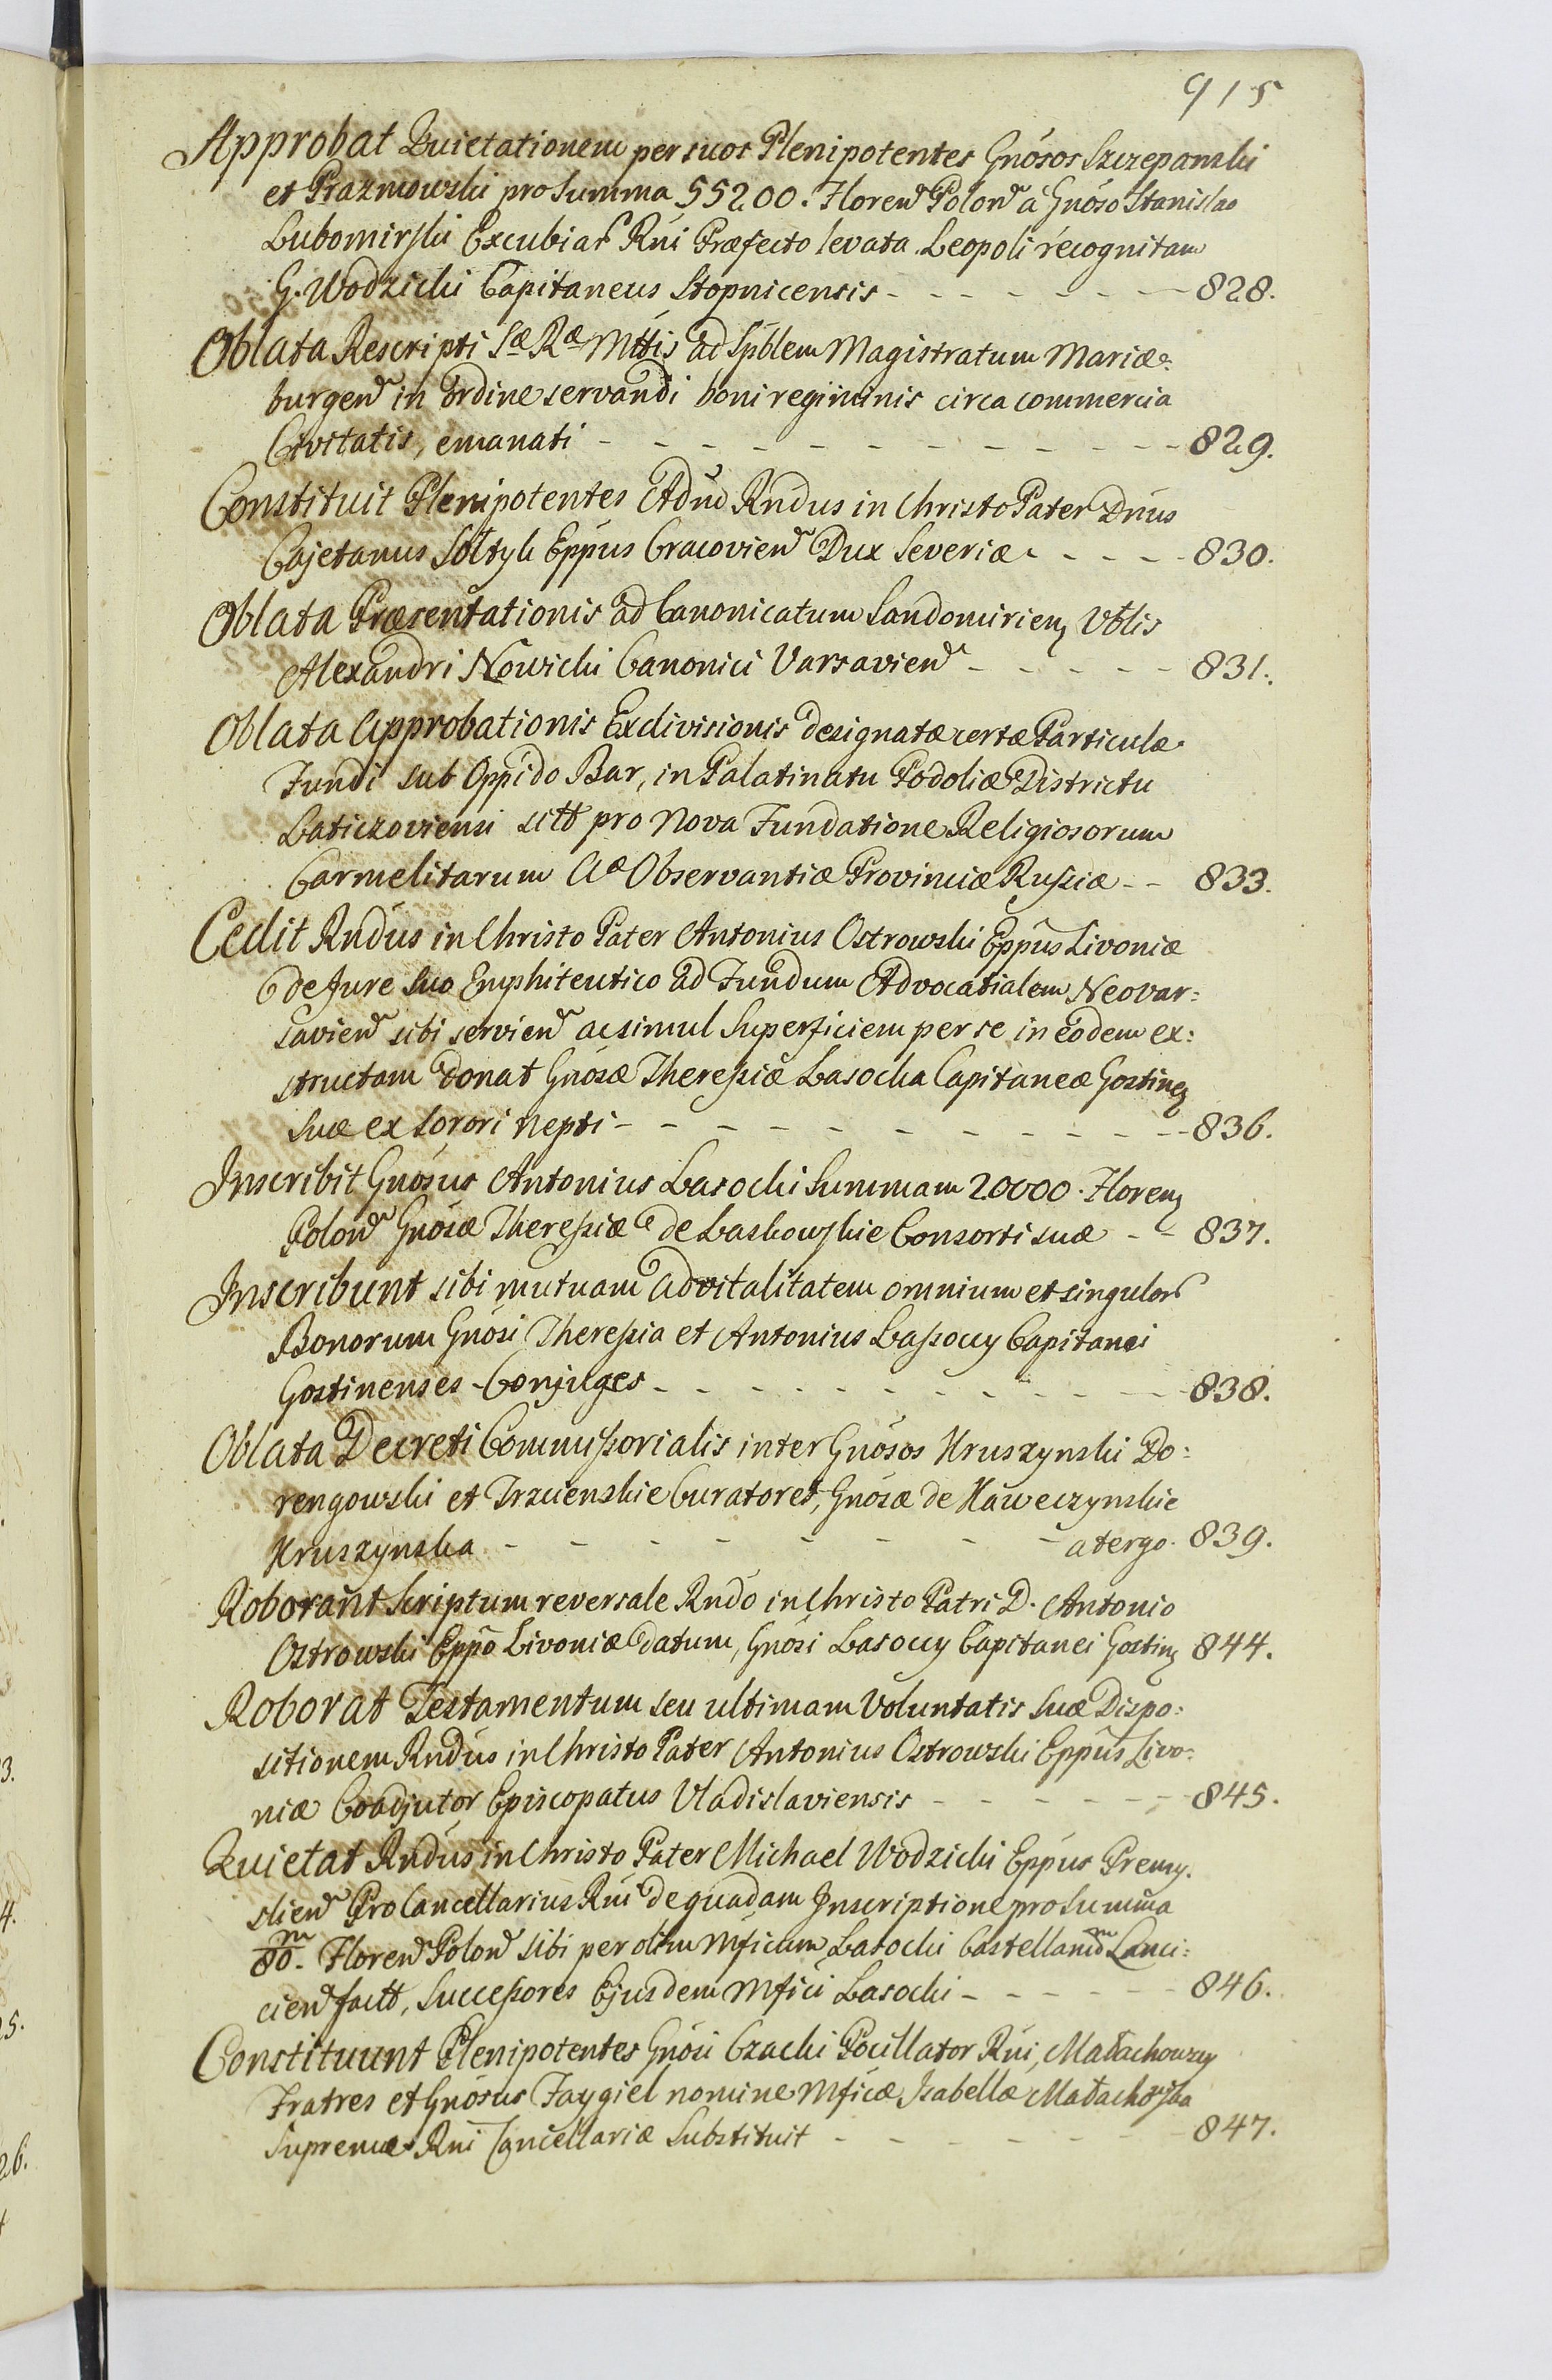 915
Approbat Quietationem per suos Plenipotentes Gnósos Szczepanski
et Prazmowski pro Summa 55200. Floren Polon à Gnóso Stanislao
Lubomirski Excubiar Rni Præfecto levata Leopoli recognitam
G. Wodzicki Capitaneus Stopnicensis - - - - - - - 828.
Oblata Rescripti Sæ Ræ Mttis ad Spblem Magistratum Mariæ=
burgen in Ordine servandi boni regiminis circa commercia
Civitatis, emanati - - - - - - - - - - 829.
Constituit Plenipotentes Rndus in Christo Pater Dnus
Cajetanus Soltyk Eppus Cracovien Dux Severiæ - - - - 830.
Oblata Præsentationis ad Canonicatum Sandomirien Vblis
Alexandri Nowicki Canonici Varsavien - - - - - 831.
Oblata Approbationis Exdivisionis designatæ certæ Particulæ
Fundi sub Oppido Bar, in Palatinatu Podoliæ Districtu
Laticzoviensi sitt pro Nova Fundatione Religiosorum
Carmelitarum Aæ Observantiæ Provinciæ Russiæ - - 833.
Cedit Rndus in Christo Pater Antonius Ostrowski Eppus Livoniæ
de Jure Suo Emphiteutico ad Fundum Advocatialem Neovar=
savien sibi servien acsimul Superficiem per se in eodem ex=
structam donat Gnósæ Theressiæ Lasocka Capitaneæ Gostinen
Suæ ex Sorori Nepti - - - - - - - - - 836.
Inscribit Gnósus Antonius Lasocki Summam 20000. Floren
Polon Gnósæ Theressiæ de Laskowskie Consorti suæ - - 837.
Inscribunt sibi mutuam advitalitatem omnium et singulor
Bonorum Gnósi Theressia et Antonius Lassoccy Capitanei
Gostinenses Conjuges - - - - - - - - - 838.
Oblata Decreti Commissorialis inter Gnósos Kruszynski Do=
rengowski et Trzcienskie Curatores, Gnósæ de Kaweczynskie
Kruszynska - - - - - - - - a tergo. 839.
Roborant Scriptum reversale Rndo in Christo Patri D. Antonio
Ostrowski Eppo Livoniæ datum, Gnósi Lasoccy Capitanei Gostin 844.
Roborat Testamentum seu ultimam Voluntatis Suæ Dispo=
sitionem Rndus in Christo Pater Antonius Ostrowski Eppus Livo=
niæ Coadjutor Episcopatus Vladislaviensis - - - - - 845.
Quietat Rndus in Christo Pater Michael Wodzicki Eppus Premy=
slien ProCancellarius Rni de quadam Inscriptione pro Summa
80/m. Floren Polon sibi per olim Mficum Lasocki Castellanum Lanci=
cien factt, Successores Ejusdem Mfici Lasocki - - - - - 846.
Constituunt Plenipotentes Gnósi Czacki Pocillator Rni, Małachowscy
Fratres et Gnósus Faygiel nomine Mficæ Isabellæ
Supremæ Rni Cancellariæ Substituit - - - - - - 847.